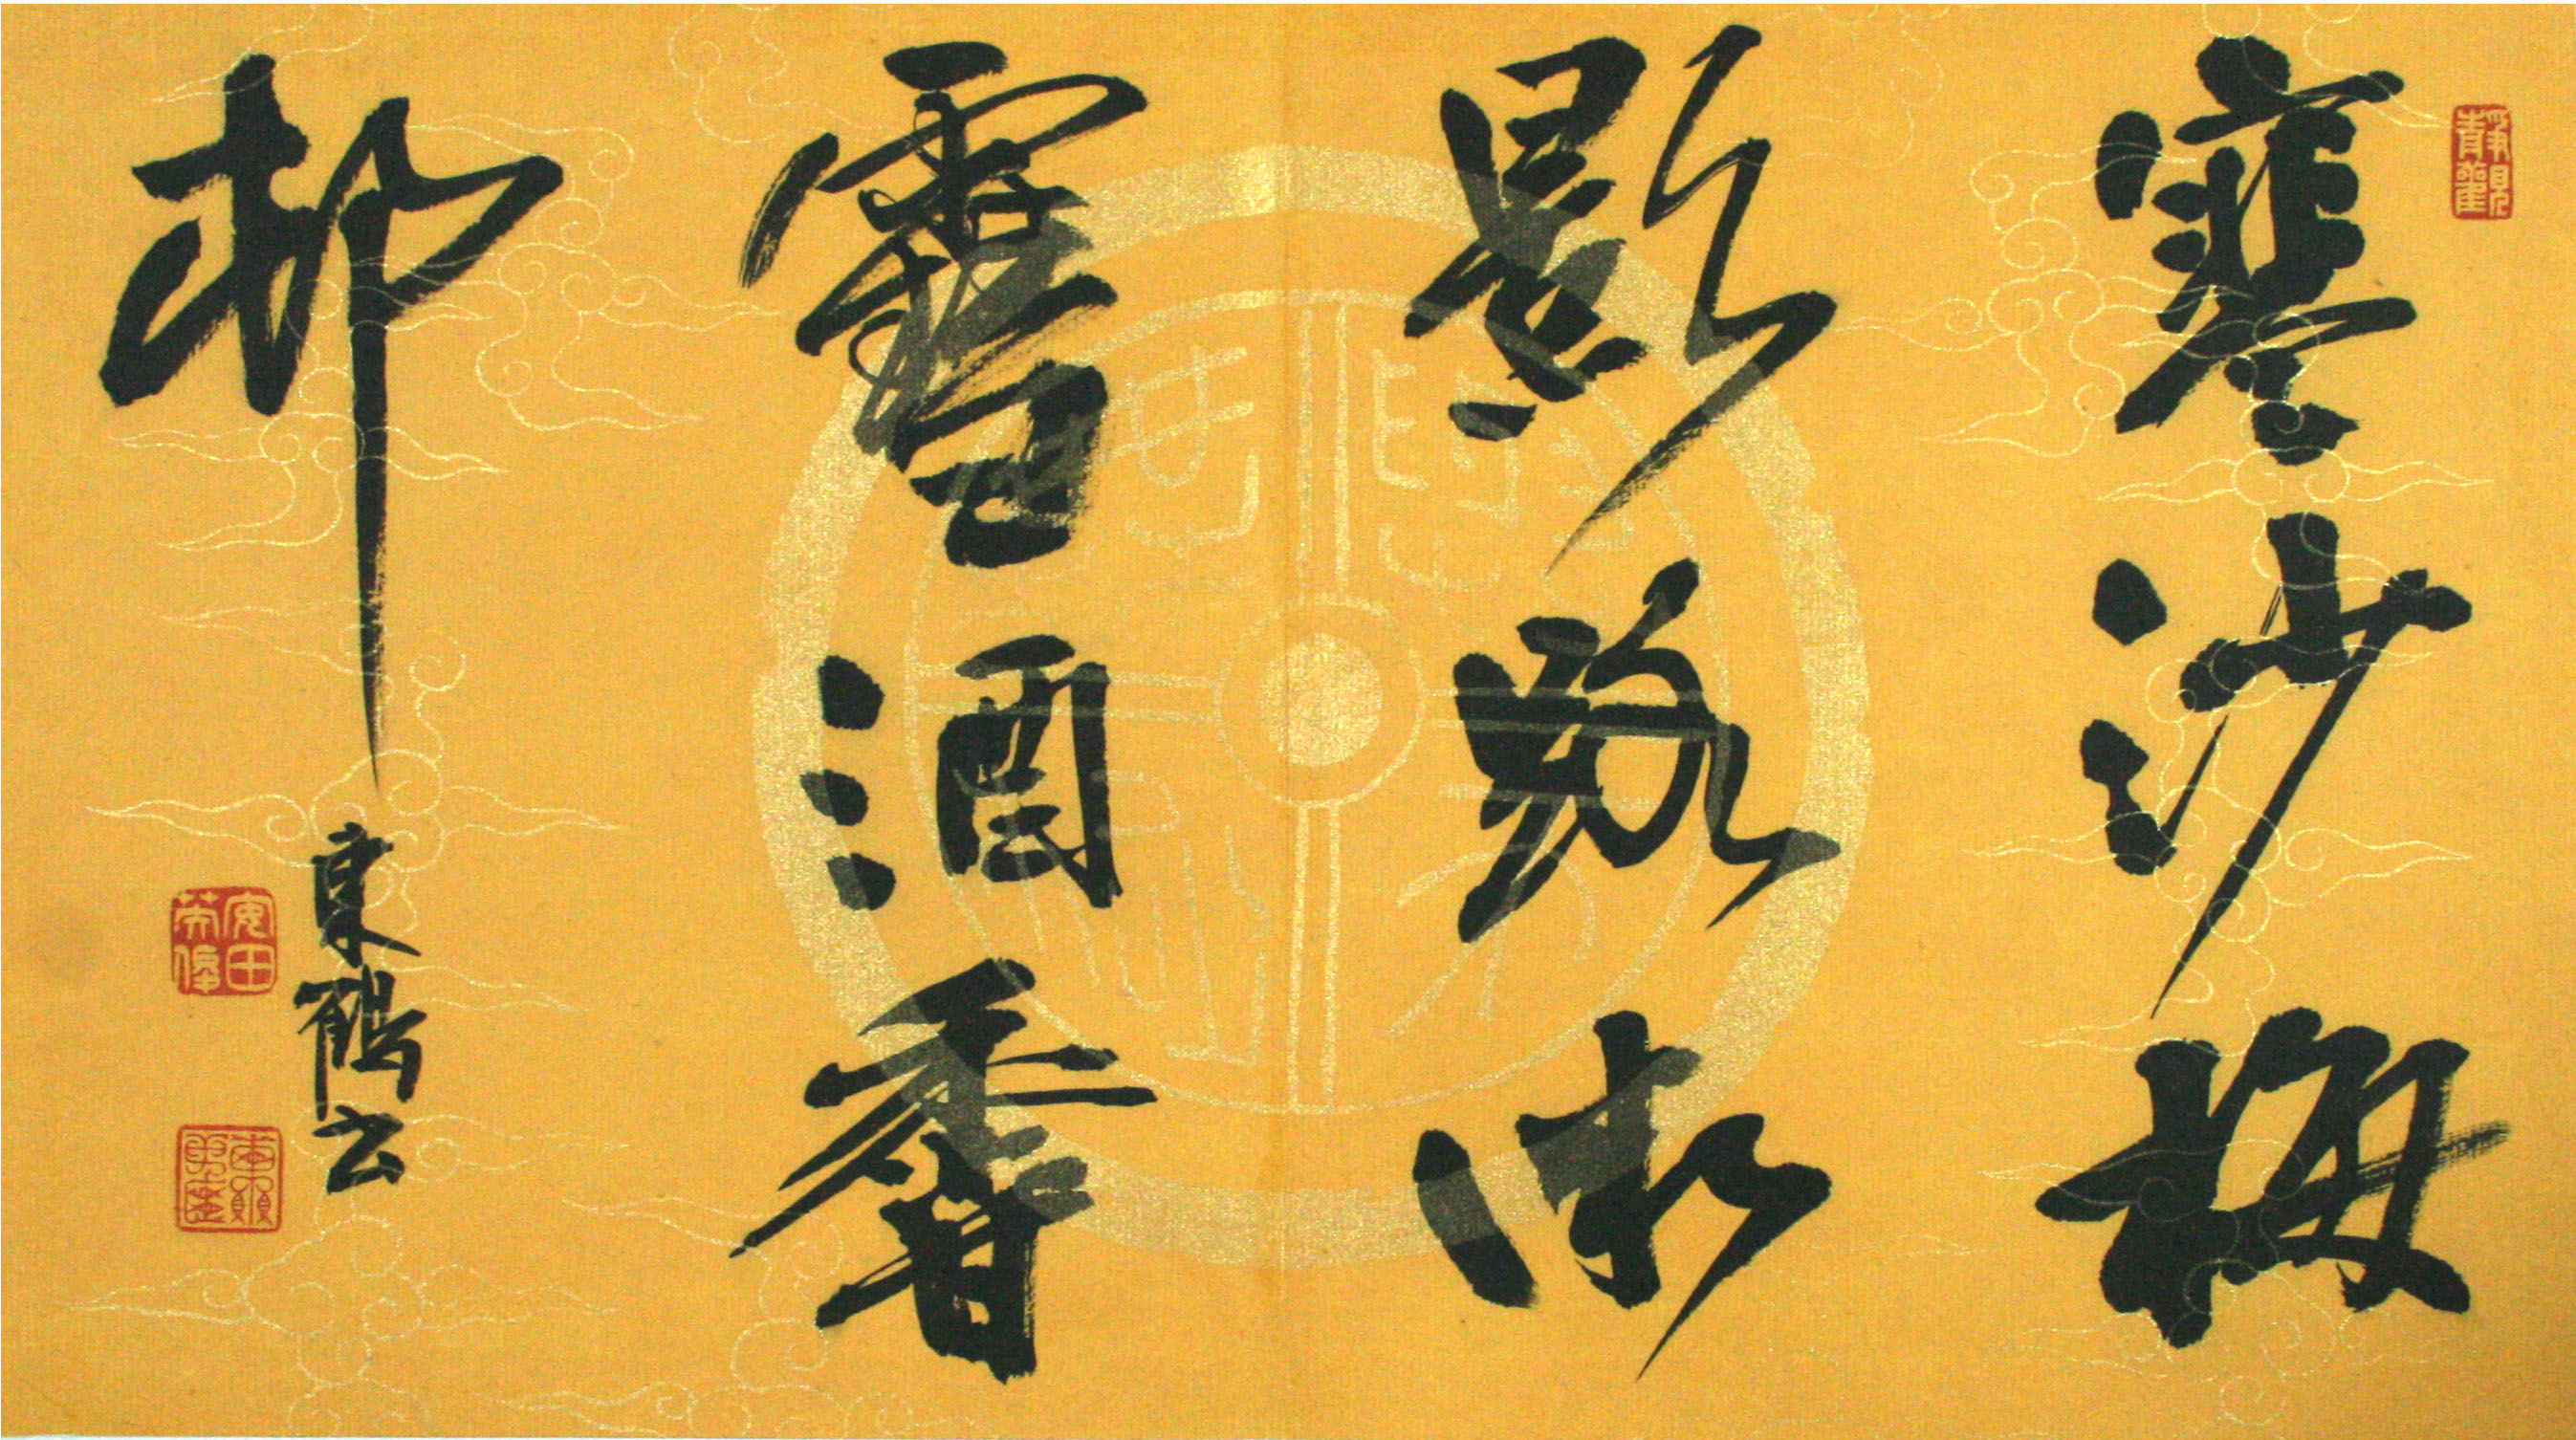 寒沙梅
影路微
雪酒香
村
東鶴